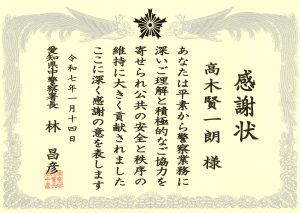 感謝状
高木賢一朗 様
あなたは平素から警察業務に
深いご理解と積極的なご協力を
寄せられ公共の安全と秩序の
維持に大きく貢献されました
ここに深く感謝の意を表します
令和七年一月十四日
愛知県中警察署長 林 昌彦